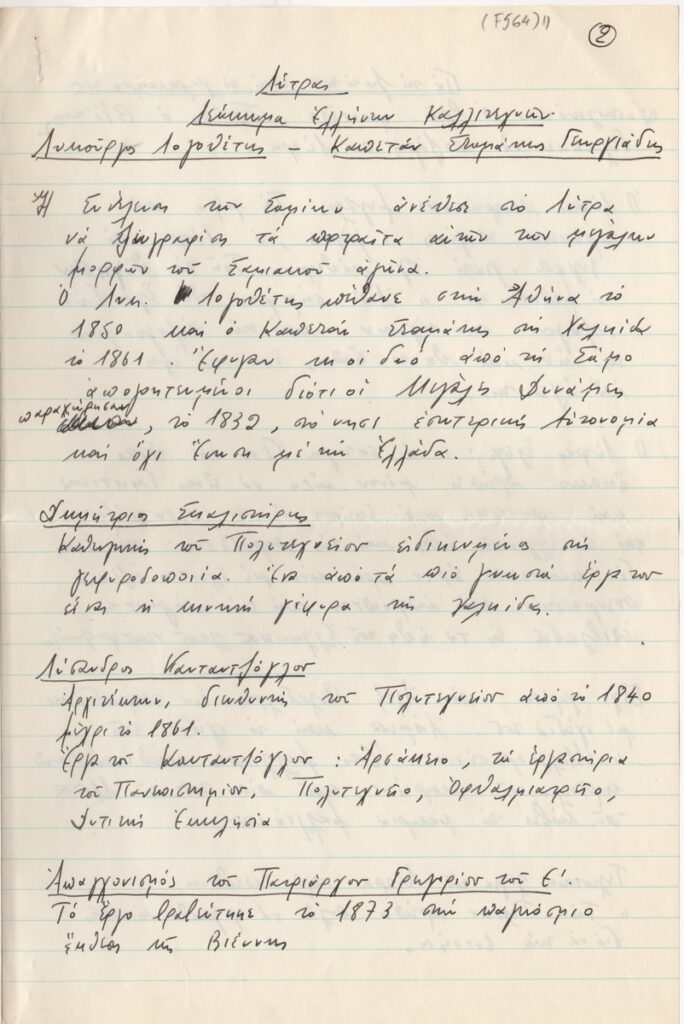 (F564)11
2
Λύτρας
Λεύκωμα Ἑλλήνων Καλλιτεχνῶν
Λυκοῦργος Λογοθέτης – Καπετάν Σταμάτης Γεωργιάδης
Ἡ Συνέλευση των Σαμίων ἀνέθεσε στο Λύτρα
νά ζωγραφίση τά πορτραῖτα αὐτῶν των μεγάλων
μορφῶν τοῦ Σαμιακοῦ ἀγώνα.
Ὁ Λυκ. Λογοθέτης πέθανε στήν Ἀθήνα τό
1850 καί ὁ Καπετάν Σταμάτης στή Χαλκίδα
τό 1861. Ἔφυγαν κι οἱ δυό ἀπό τή Σάμο
ἀπογοητευμένοι διότι οἱ Μεγάλες Δυνάμεις
παραχώρησαν, τό 1832, στό νησί ἐσωτερική Αὐτονομία
καί ὄχι Ἕνωση μέ τήν Ἑλλάδα.
Δημήτριος Σκαλιστήρης
Καθηγητής τοῦ Πολυτεχνείου εἰδικευμένος στή
γεφυροδοποιία. Ἕνα ἀπό τά πιό γνωστά ἔργα του
εἶναι ἡ κινητή γέφυρα τῆς Χαλκίδας.
Λύσανδρος Καυταντζόγλου
Ἀρχιτέκτων, διευθυντής τοῦ Πολυτεχνείου ἀπό τό 1840
μέχρι τό 1861.
Ἔργα τοῦ Καυταντζόγλου : Ἀρσάκειο, τά ἐργαστήρια
τοῦ Πανεπιστημίου, Πολυτεχνεῖο, Ὀφθαλμιατρεῖο,
Δυτική Ἐκκλησία
Ἀπαγχονισμός τοῦ Πατριάρχου Γρηγορίου τοῦ Ε΄.
Τό ἔργο βραβεύτηκε τό 1873 στήν παγκόσμιο
ἔκθεση τῆς Βιέννης